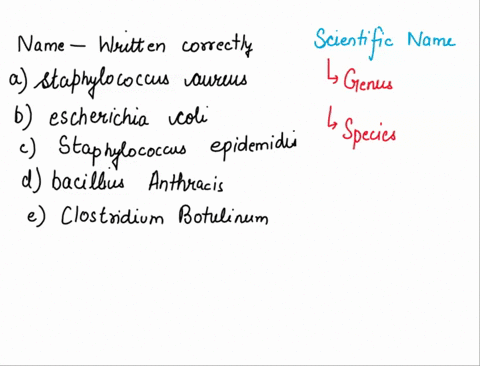 Name – Written correctly
a) Staphylococcus aureus
b) escherichia coli
c) Staphylococcus epidemidis
d) bacillius Anthracis
e) Clostridium Botulinum
Scientific Name
↳ Genus
↳ Species